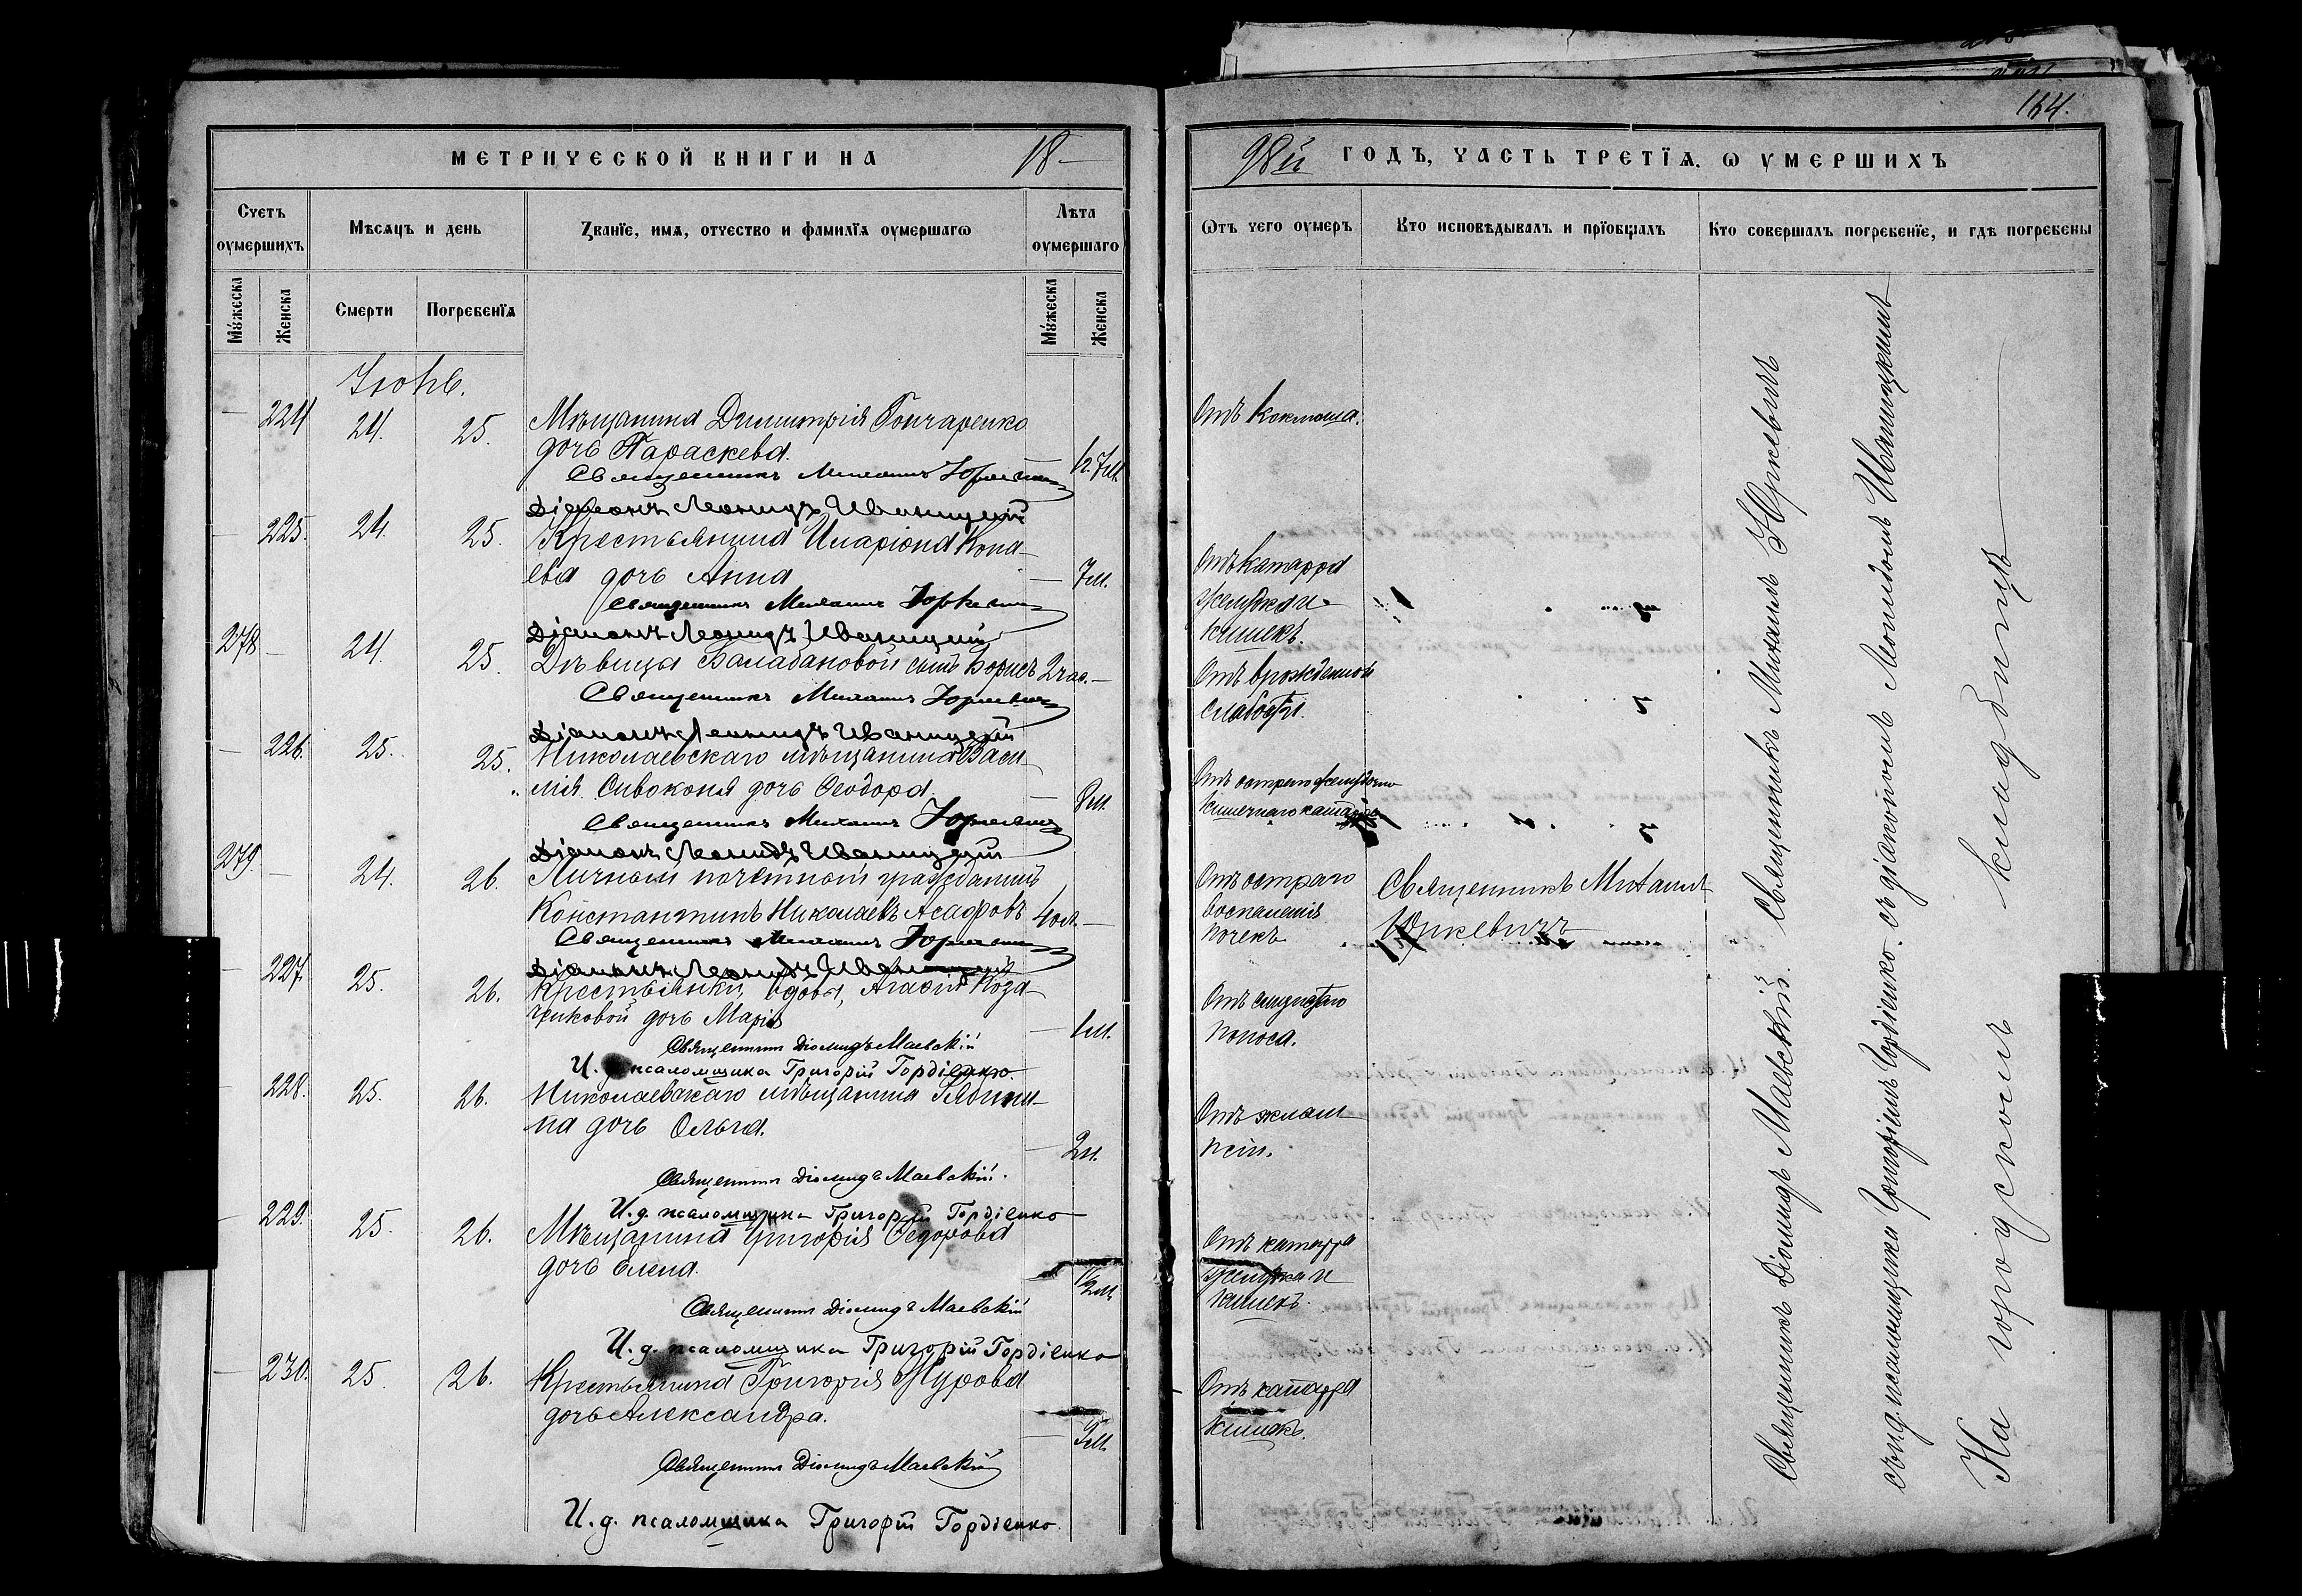 164.
МЕТРИЧЕСКОЙ КНИГИ НА 18
98й ГОДЪ, ЧАСТЬ ТРЕТЇѦ. Ѡ УМЕРШИХЪ
Счетъ оумершихъ
Мѣсяцъ и день
Званїе, имѧ, отчество и фамилїѧ оумершагѡ
Лѣта оумершаго
Ѿтъ чего оумеръ
Кто исповѣдывалъ и прїобщалъ
Кто совершалъ погребенїе, и гдѣ погребены
Мужеска
Женска
Смерти
Погребенїѧ
Мужеска
Женска
Іюнь.
224 24. 25. Мѣщанина Димитрія Гончаренко
дочь Параскева.
Священникъ Михаилъ Юркевичъ
Діаконъ Леонидъ Иваницкій
Отъ коклюша.
225. 24. 25. Крестьянина Иларіона Копа-
ева дочь Анна 7м.
Священникъ Михаилъ Юркевичъ
Діаконъ Леонидъ Иваницкій
Отъ катарра
желудка и
кишекъ.
278 24. 25. Дѣвицы Балабановой сынъ Борисъ 2 час.
Священникъ Михаилъ Юркевичъ
Діаконъ Леонидъ Иваницкій
Отъ врожденной
слабости.
226. 25. 25. Николаевскаго мѣщанина Васи-
лія Сивоконя дочь Ѳеодора 8м
Священникъ Михаилъ Юркевичъ
Діаконъ Леонидъ Иваницкій
Отъ остраго желудочно
кишечнаго катарра
279. 24. 26. Личный почетный гражданинъ
Константинъ Николаевъ Асафовъ 40л.
Священникъ Михаилъ Юркевичъ
Діаконъ Леонидъ Иваницкій
Отъ остраго
воспаленія
почекъ
Священникъ Михаилъ
Юркевичъ
227. 25. 26. Крестьянки, вдовы, Агафіи Коза-
чиковой дочь Марія 1м.
Священникъ Діомидъ Маевскій
И. д. псаломщика Григорій Гордіенко.
Отъ слизистаго
поноса.
228. 25. 26. Николаевскаго мѣщанина
на дочь Ольга. 2м.
Священникъ Діомидъ Маевскій.
И. д. псаломщика Григорій Гордіенко
Отъ эклам-
псіи.
229. 25. 26. Мѣщанина Григорія Ѳедорова
дочь Елена.
Священникъ Діомидъ Маевскій
И. д. псаломщика Григорій Гордіенко
Отъ катарра
желудка и
кишекъ.
230. 25 26. Крестьянина Григорія Журова
дочь Александра.
Священникъ Діомидъ Маевскій
И. д. псаломщика Григорій Гордіенко.
Отъ катарра
кишекъ.
Священникъ Діомидъ Маевскій. Священникъ Михаилъ Юркевичъ
съ и.д. псаломщика Григоріемъ Гордіенко. съ діакономъ Леонидомъ Иваницкимъ
На городскомъ кладбищѣ